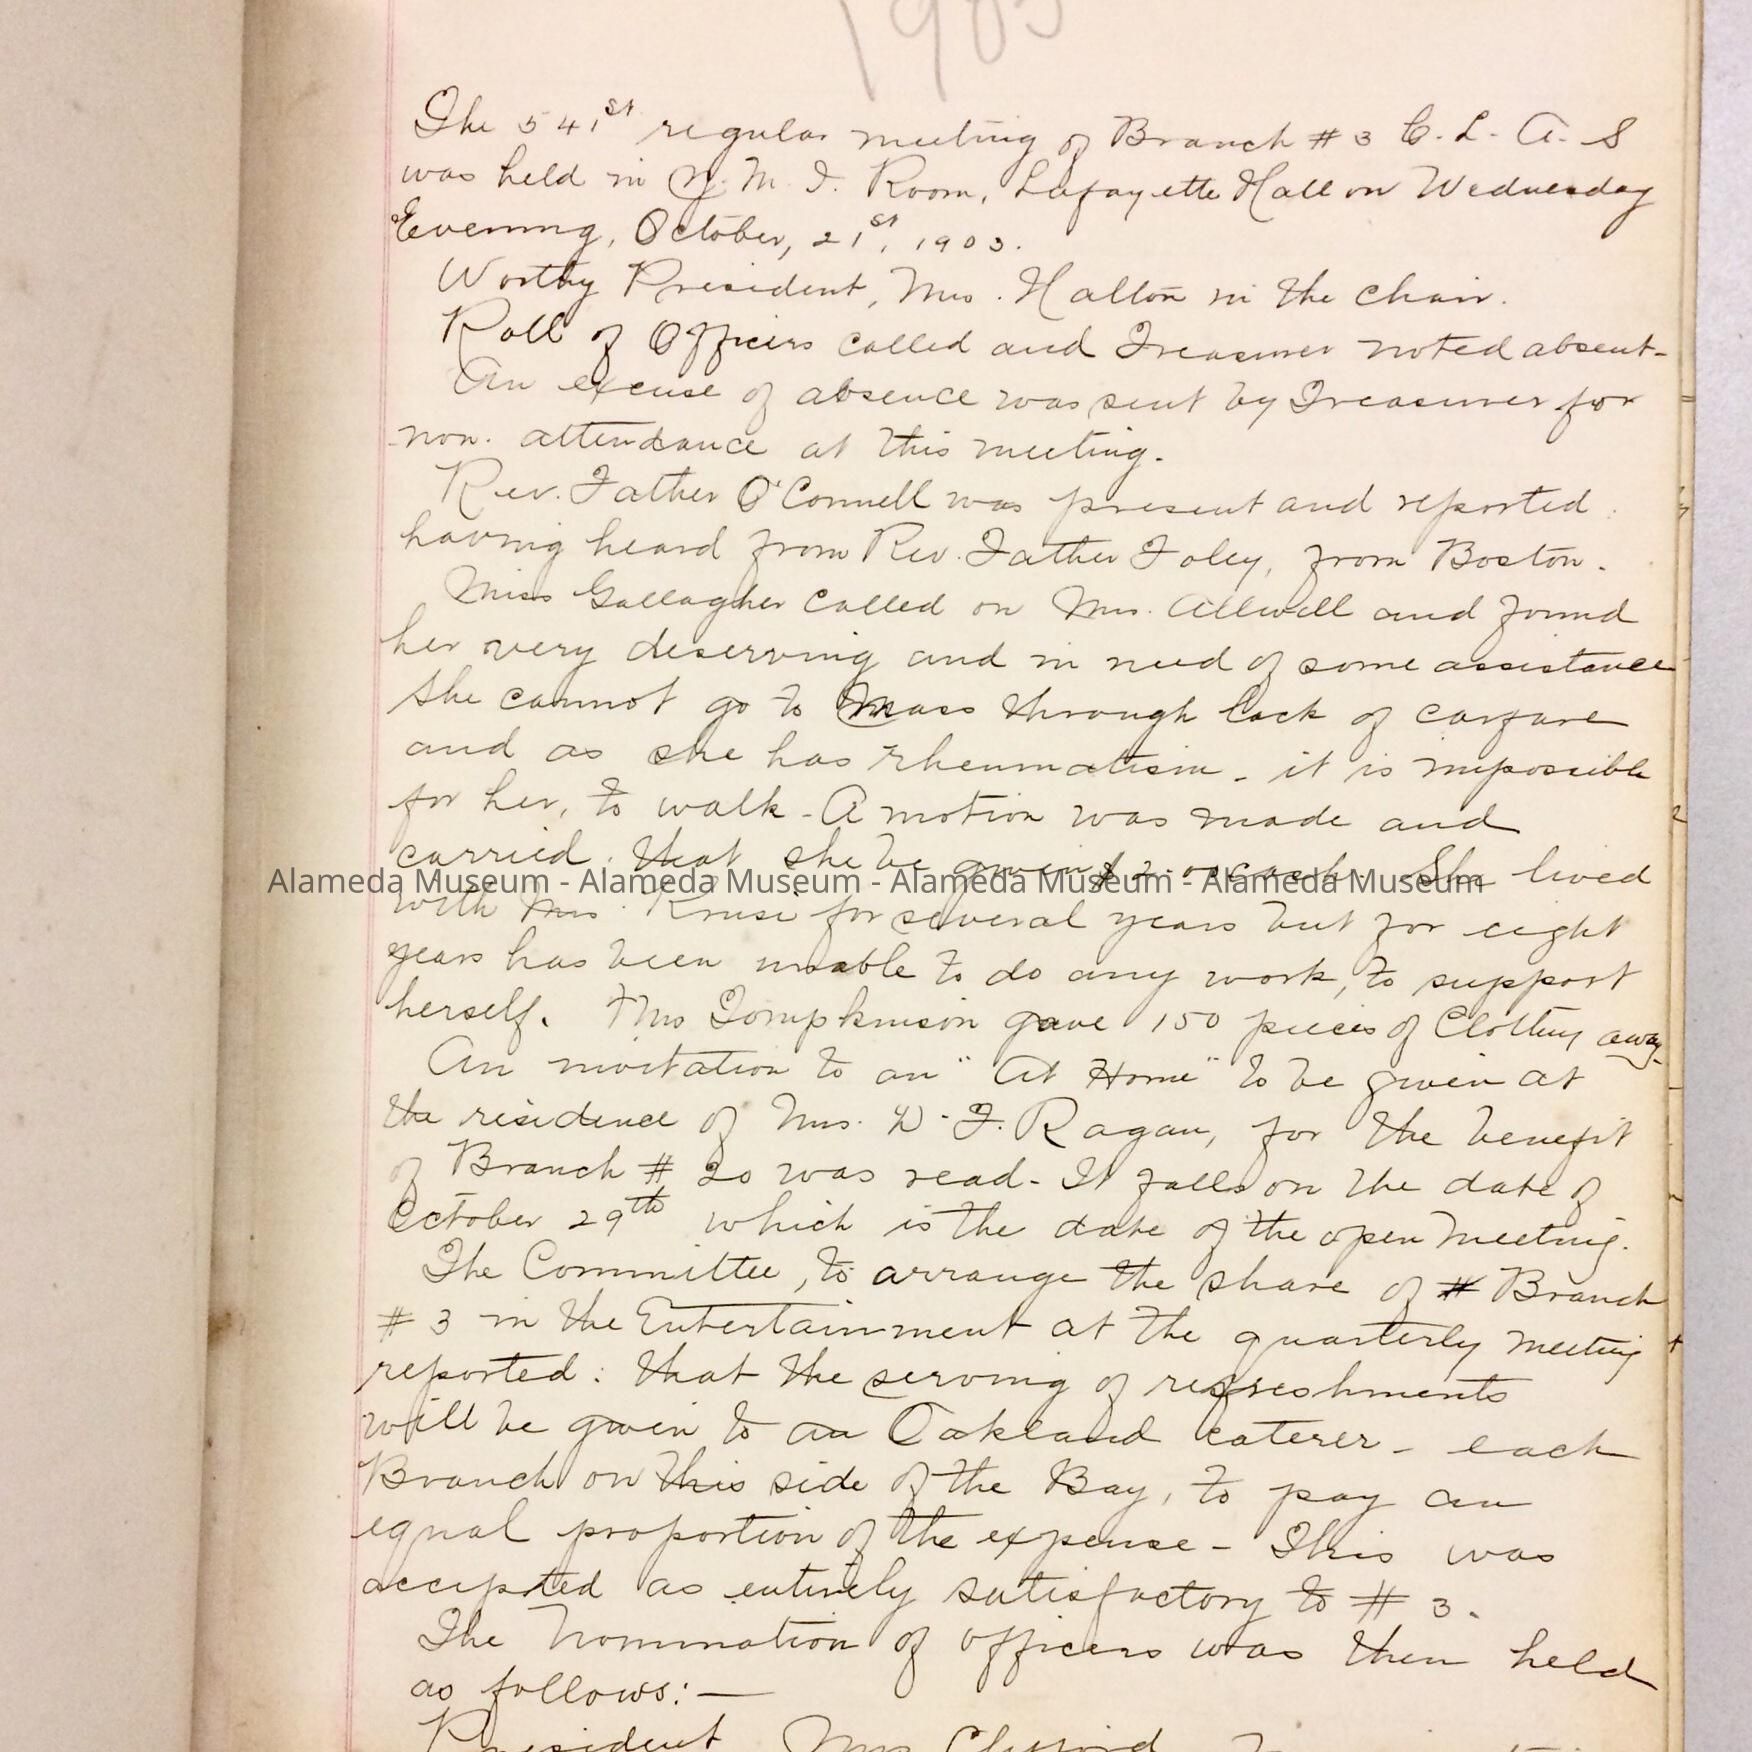 1903
The 541st regular meeting of Branch # 3 C. L. A. S
was held in Y. M. I. Room, Lafayette Hall on Wednesday
Evening, October, 21st, 1903.
Worthy President, Mrs. Hallon in the chair.
Roll of Officers called and Treasurer noted absent-
An excuse of absence was sent by Treasurer for
non. attendance at this meeting.
Rev. Father O'Connell was present and reported
having heard from Rev. Father Foley, from Boston.
Miss Gallagher called on Mrs. Allwell and found
her very deserving and in need of some assistance
she cannot go to Mass through lack of carfare
and as she has rheumatism - it is impossible
for her, to walk - A motion was made and
carried. that she be given $2.00 cash. She lived
Alameda Museum - Alameda Museum - Alameda Museum - Alameda Museum
with Mrs. Krusi for several years but for eight
years has been unable to do any work, to support
herself. Mrs Tompkinson gave 150 pieces of Clothing away.
An invitation to an "At Home" to be given at
the residence of Mrs. D. F. Ragan, for the benefit
of Branch # 20 was read - It falls on the date of
October 29th which is the date of the open meeting.
The Committee, to arrange the share of # Branch
# 3 in the Entertainment at the quarterly meeting
reported: that the serving of refreshments
will be given to an Oakland caterer - each
Branch on this side of the Bay, to pay an
equal proportion of the expense - This was
accepted as entirely satisfactory to # 3.
The Nomination of officers was then held
as follows: —
President Mrs Clifford